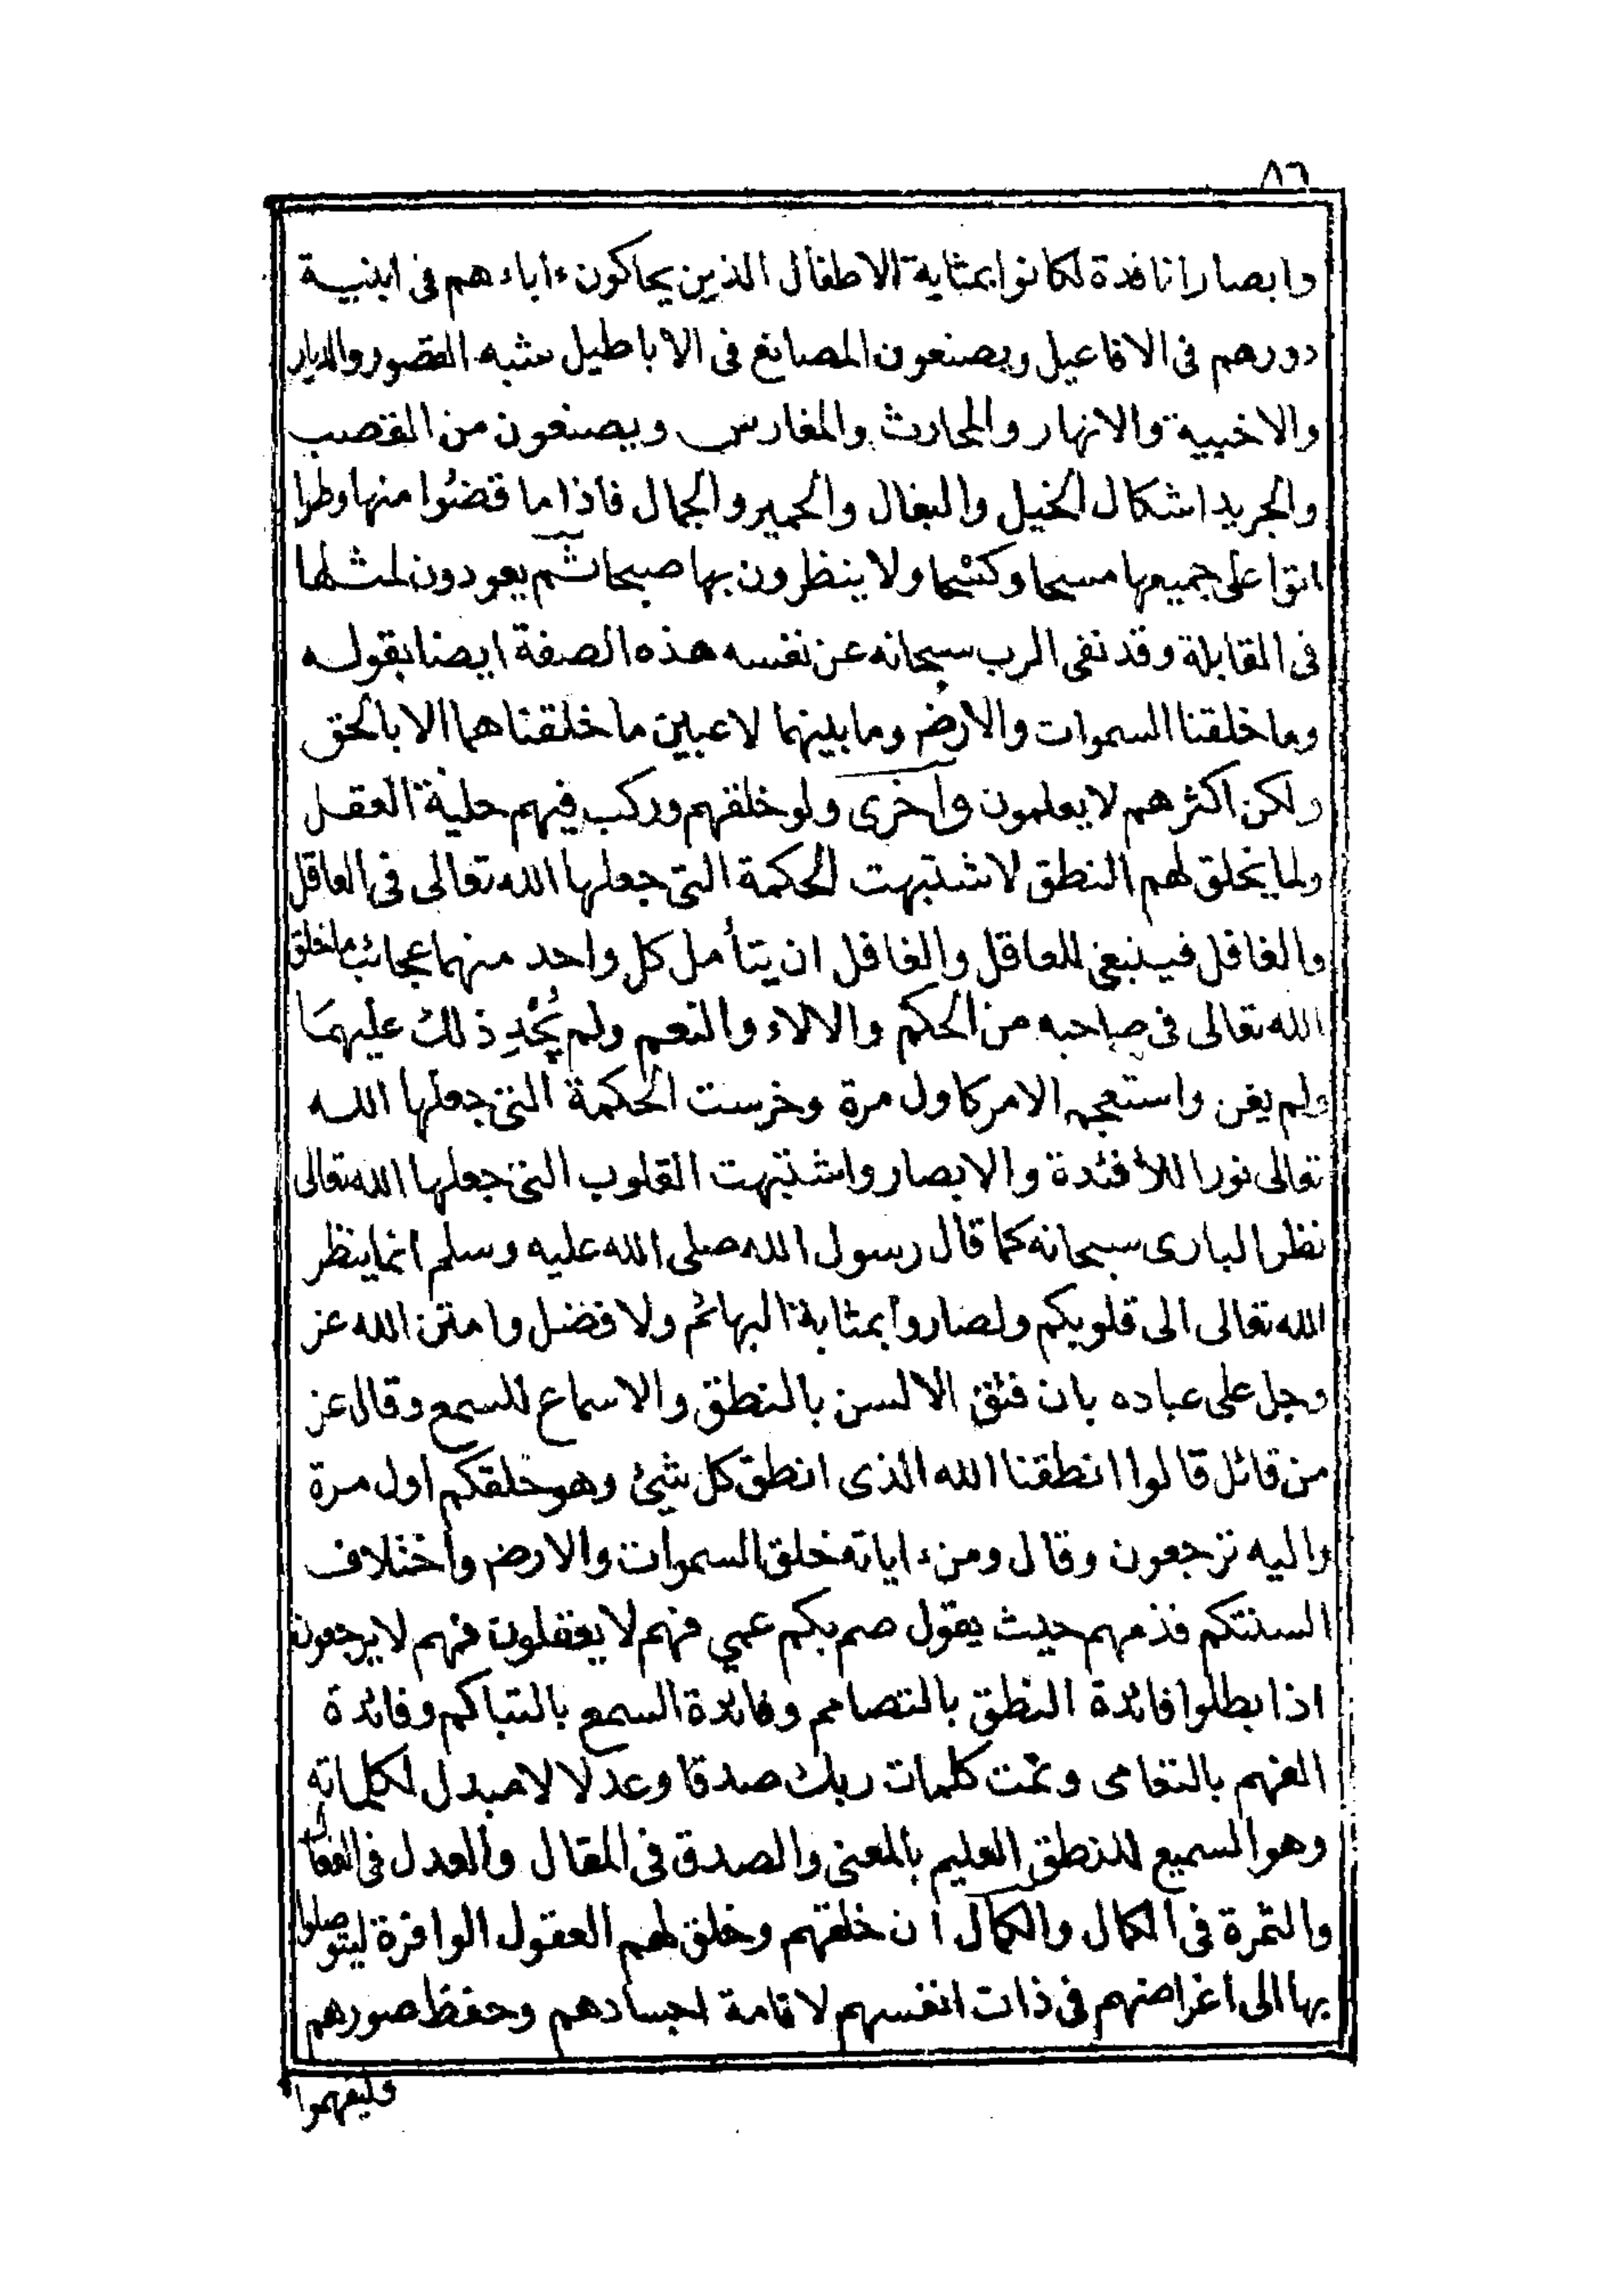 ٨٦
وابصارا نافذة لكانوا بمثابة الاطفال الذين يحاكون ءاباءهم فى ابنية
دورهم فى الافاعيل ويصنعون المصانع فى الاباطيل شبه القصور والديار
والاخبية والانهار والمحارث والمغارس ويصنعون من القصب
والجريد اشكال الخيل والبغال والحمير والجمال فاذا ما قضوا منها وطرا
اتوا على جميعها مسحا وكشحا ولا ينظرون بها صبحا ثم يعودون لمثلها
فى المقابلة وقد نفى الرب سبحانه عن نفسه هذه الصفة ايضا بقوله
وما خلقنا السموات والارض وما بينهما لاعبين ما خلقناهما الا بالحق
ولكن اكثرهم لا يعلمون وأخرى ولو خلقهم وركب فيهم حلية العقل
ولما يخلق لهم النطق لاشتبهت الحكمة التى جعلها الله تعالى فى العاقل
والغافل فينبغى للعاقل والغافل ان يتأمل كل واحد منهما عجائب ما خلق
الله تعالى فى صاحبه من الحكم والالاء والنعم ولم يُجْدِ ذلك عليهما
ولم يغن واستعجم الامر كاول مرة وخرست الحكمة التى جعلها الله
تعالى نورا للأفئدة والابصار واشتبهت القلوب التى جعلها الله تعالى
نظر البارى سبحانه كما قال رسول الله صلى الله عليه وسلم انما ينظر
الله تعالى الى قلوبكم ولصاروا بمثابة البهائم ولا فضل وامتن الله عز
وجل على عباده بان فتق الالسن بالنطق والاسماع للسمع وقال عز
من قائل قالوا انطقنا الله الذى انطق كل شيئ وهو خلقكم اول مرة
واليه ترجعون وقال ومن ءاياته خلق السموات والارض واختلاف
السنتكم فذمهم حيث يقول صم بكم عمي فهم لا يعقلون فهم لا يرجعون
اذا بطلوا فائدة النطق بالتصامم وفائدة السمع بالتباكم وفائدة
الفهم بالتعامى وتمت كلمات ربك صدقا وعدلا لا مبدل لكلماته
وهو السميع للنطق العليم بالمعنى والصدق فى المقال والعدل فى الفعال
والثمرة فى الكمال والكمال ان خلقهم وخلق لهم العقول الوافرة ليتوصلوا
بها الى اغراضهم فى ذات انفسهم لاقامة اجسادهم وحفظ صورهم
وليفهموا